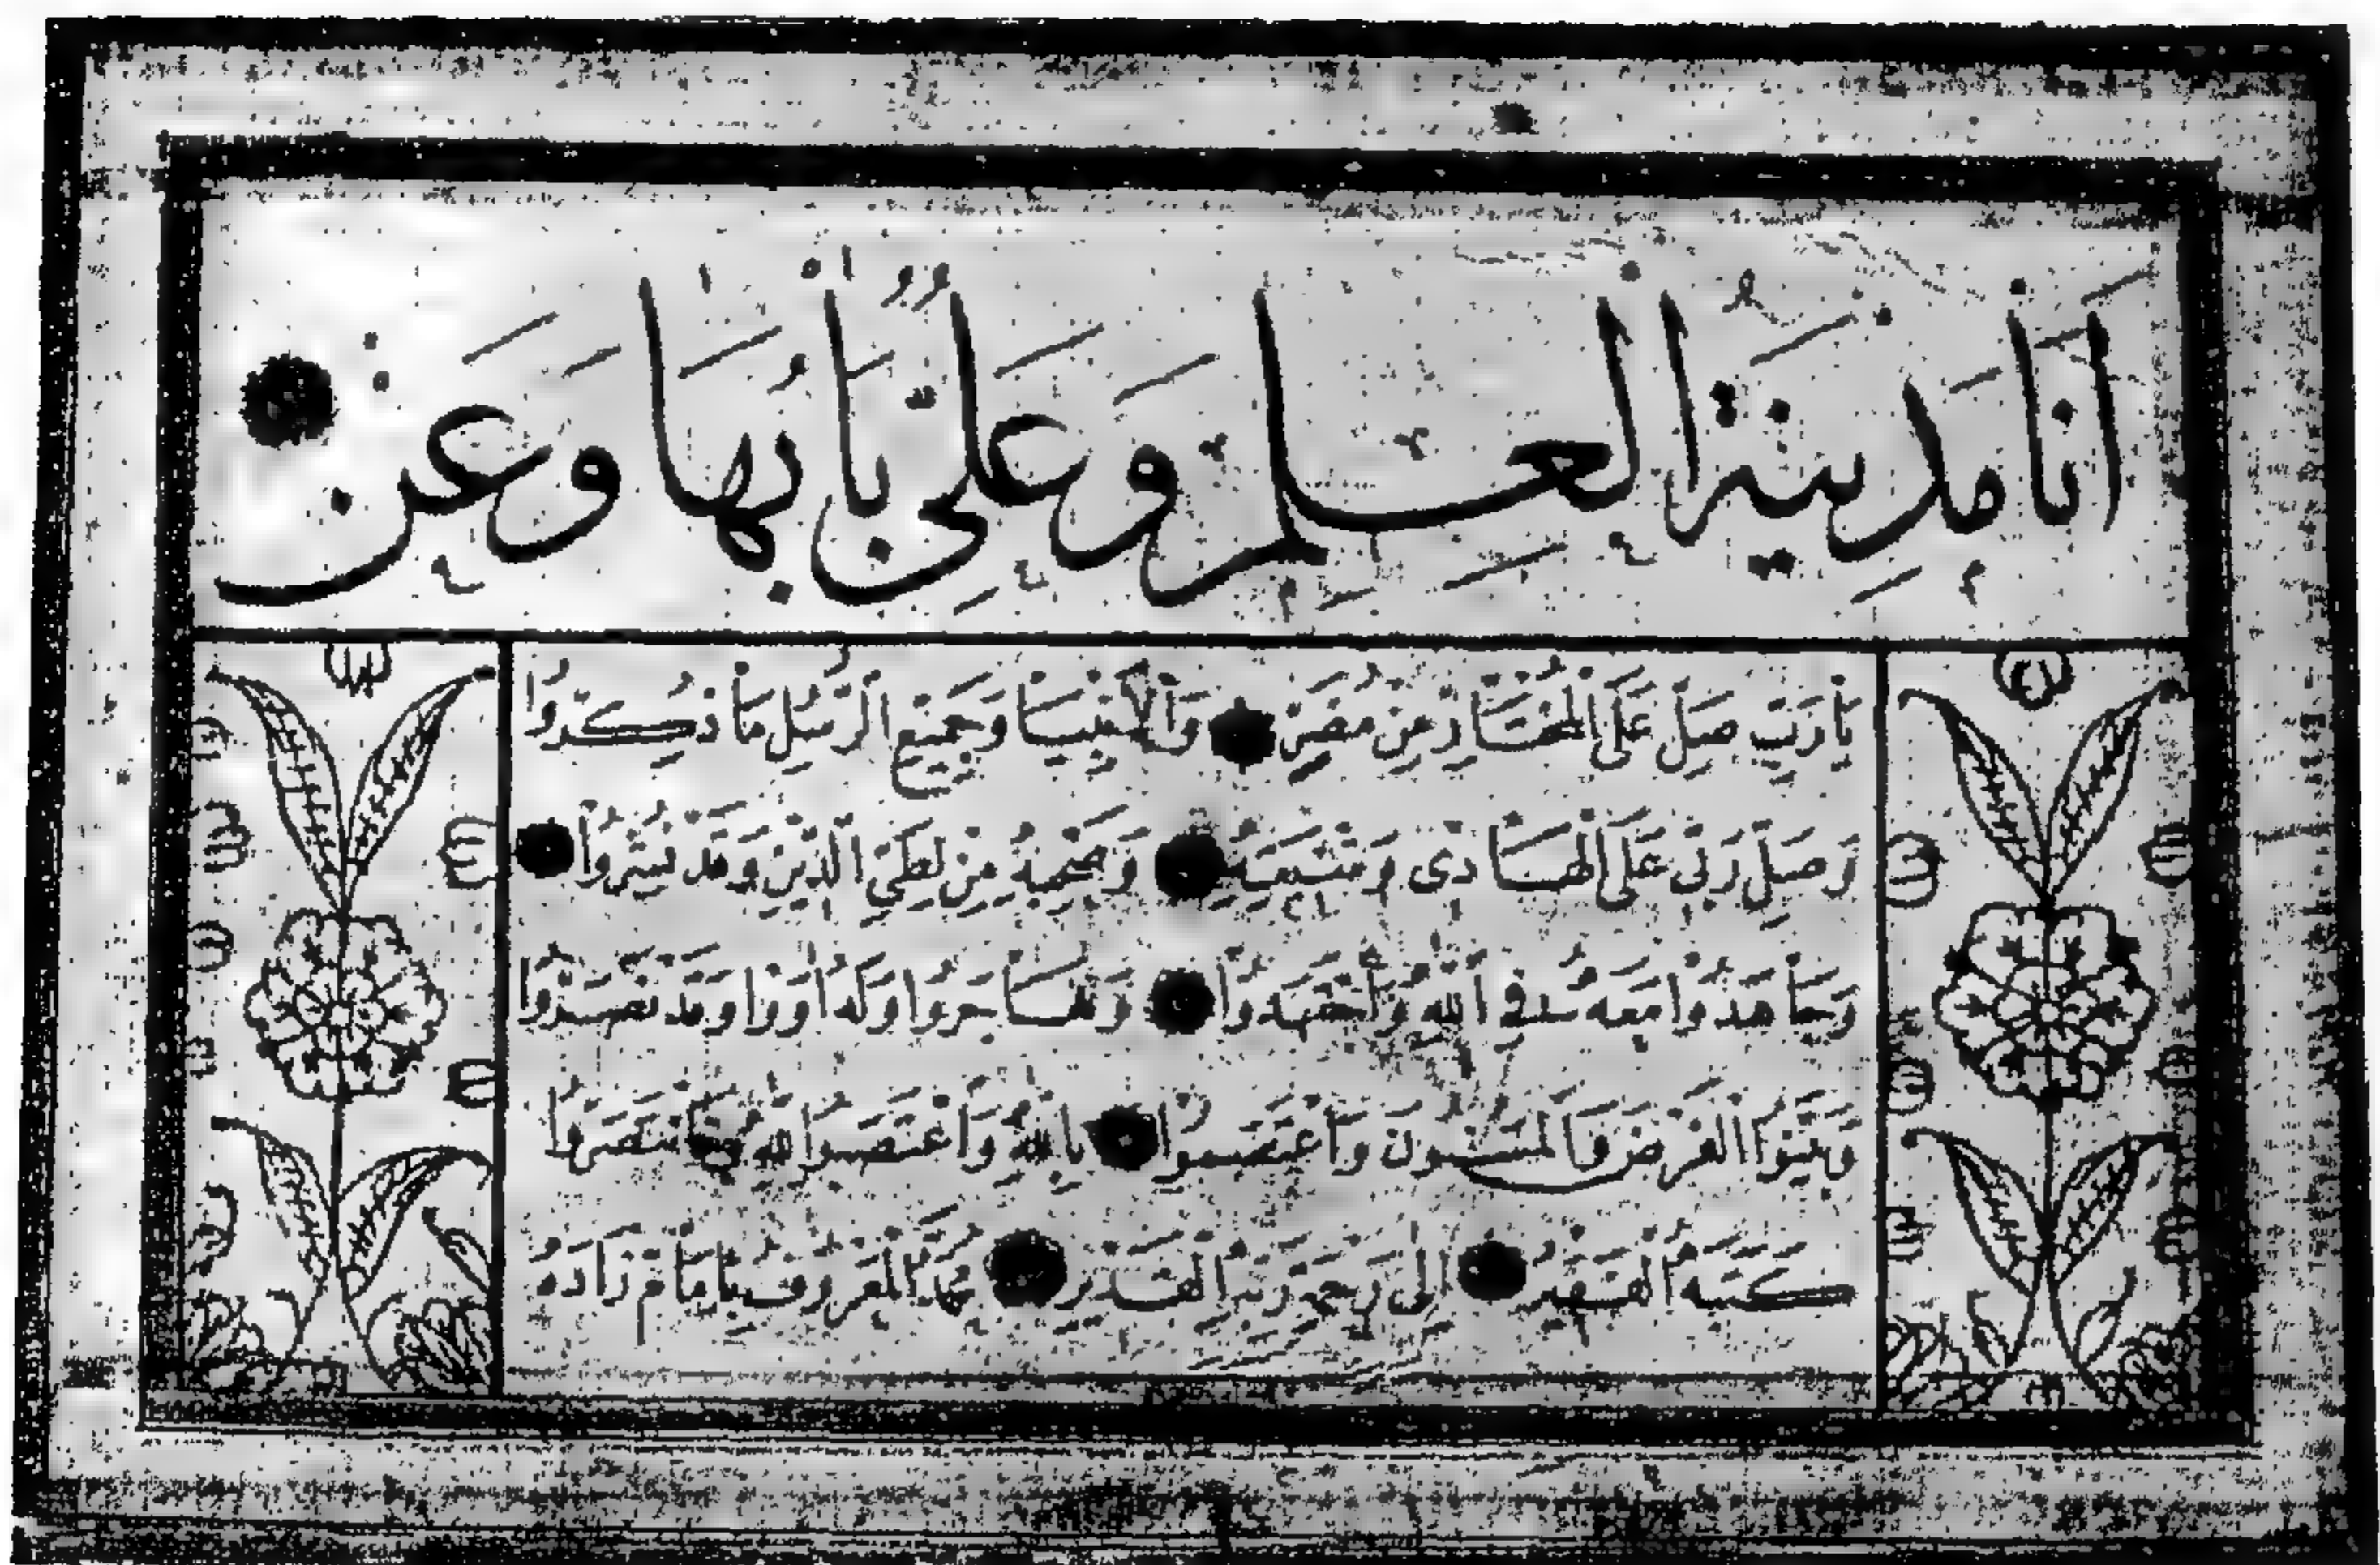 أَنَا مَدِينَةُ الْعِلْمِ وَعَلِيٌّ بَابُهَا وَعَنْ
يَا رَبِّ صَلِّ عَلَى الْمُخْتَارِ مِنْ مُضَرٍ وَالْأَنْبِيَا وَجَمِيعِ الرُّسُلِ مَا ذُكِرُوا
وَصَلِّ رَبِّ عَلَى الْهَادِي وَشِيعَتِهِ وَصَحْبِهِ مَنْ لِطَيِّ الدِّينِ وَقَدْ نَشَرُوا
وَجَاهَدُوا مَعَهُ فِي اللهِ وَاجْتَهَدُوا وَهَاجَرُوا وَلَهُ آوَوْا وَقَدْ نَصَرُوا
وَبَيَّنُوا الْفَرْضَ وَالْمَسْنُونَ وَاعْتَصَبُوا بِاللهِ وَاعْتَصَمُوا لِلهِ فَانْتَصَرُوا
كَتَبَهُ الْفَقِيرُ إِلَى رَحْمَةِ رَبِّهِ الْقَدِيرِ مُحَمَّدُ الْمَعْرُوفُ بِإِمَامْ زَادَهْ